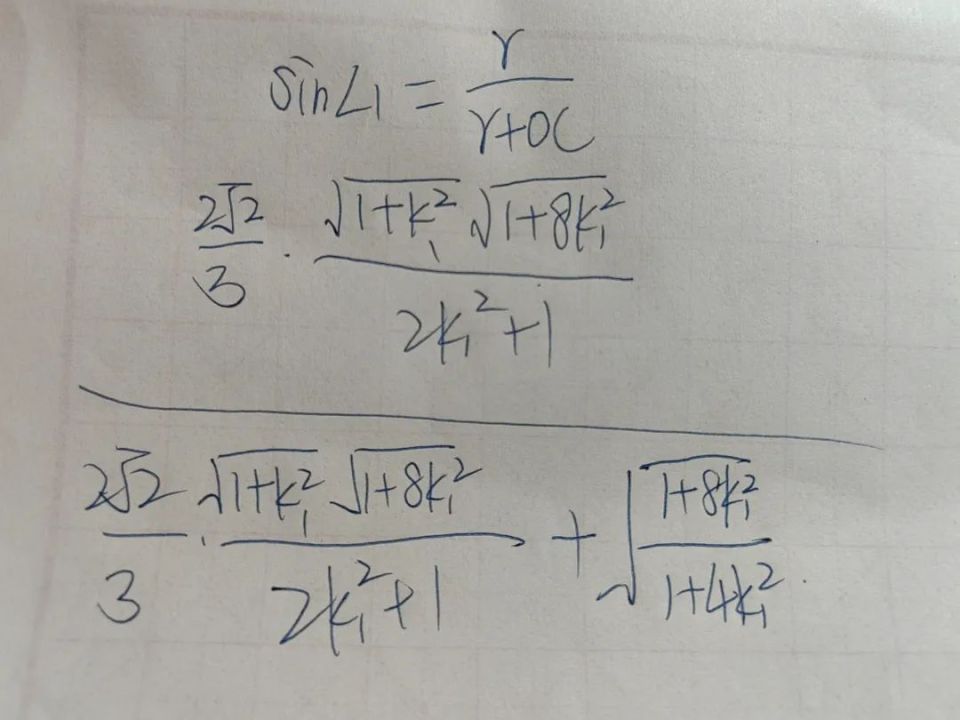 sin∠1 = r / (r+OC)
2√2/3 · √(1+k₁²) √(1+8k₁²) / (2k₁²+1)
2√2/3 · √(1+k₁²) √(1+8k₁²) / (2k₁²+1) + √((1+8k₁²)/(1+4k₁²))